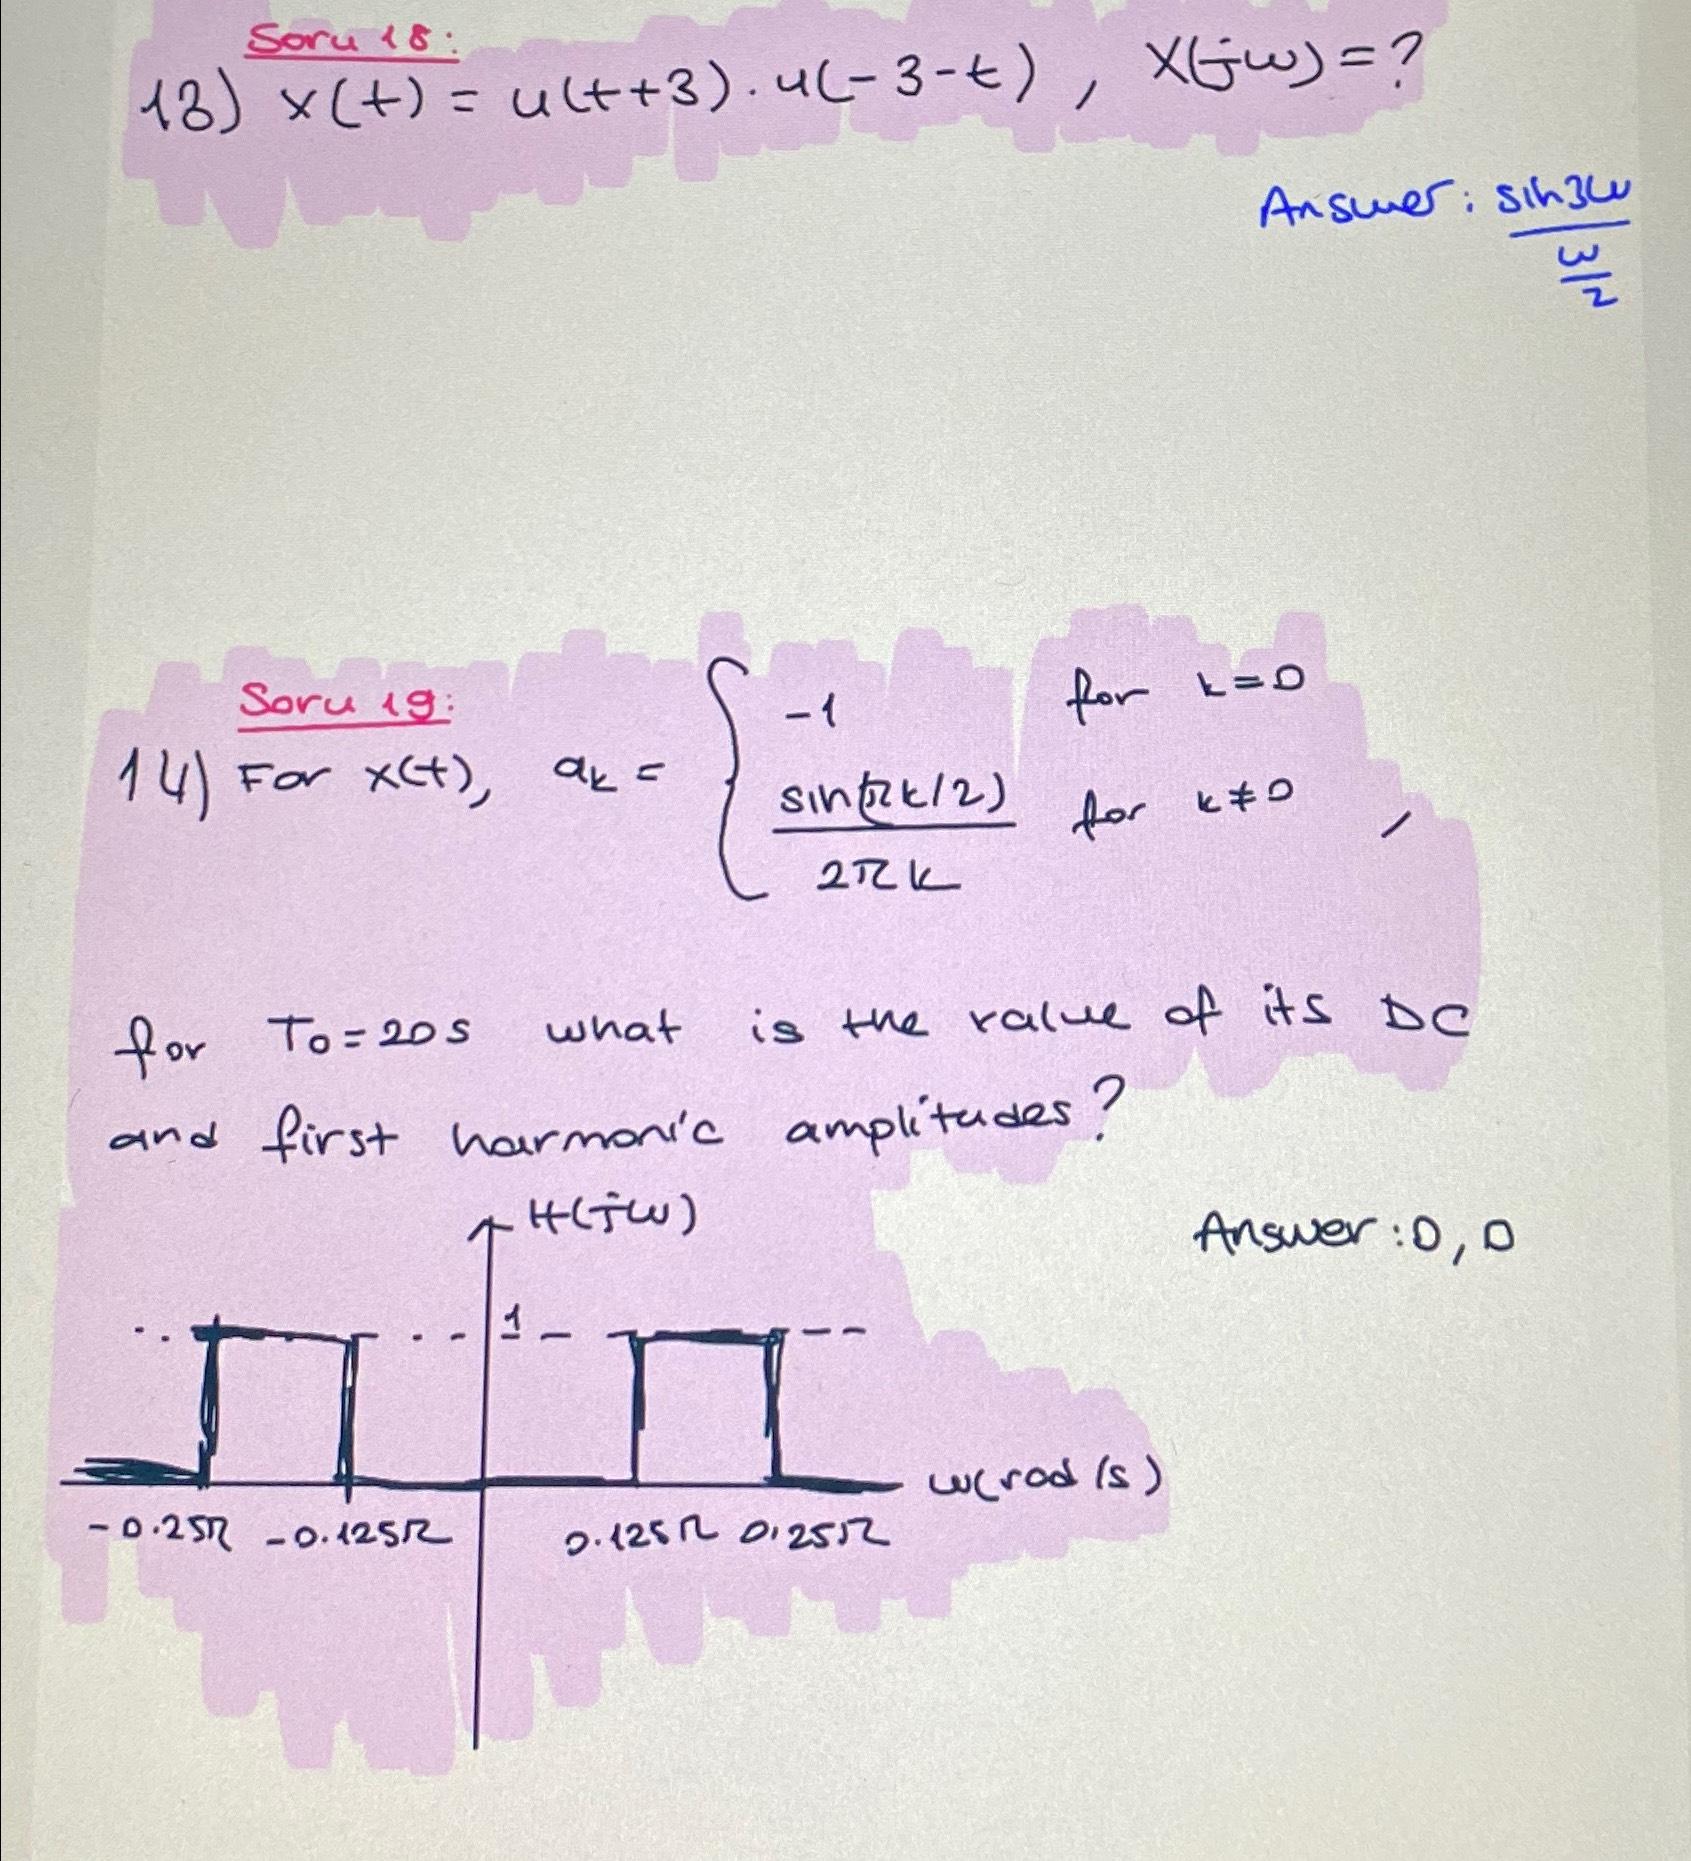 Soru 18:
13) x(t) = u(t+3).u(-3-t), X(jw)=?
Answer: sin3w
w
2
Soru 19:
14) For x(t), ak = { -1 for k=0
sin(πk/2) for k≠0,
2πk
for To=20s what is the value of its DC
and first harmonic amplitudes?
H(jw)
Answer: 0, 0
1
w(rad/s)
-0.25π -0.125π 0.125π 0.25π